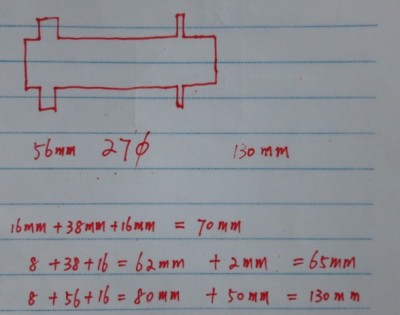 56mm 27ϕ 130mm
16mm + 38mm + 16mm = 70mm
8 + 38 + 16 = 62mm + 2mm = 65mm
8 + 56 + 16 = 80mm + 50mm = 130mm